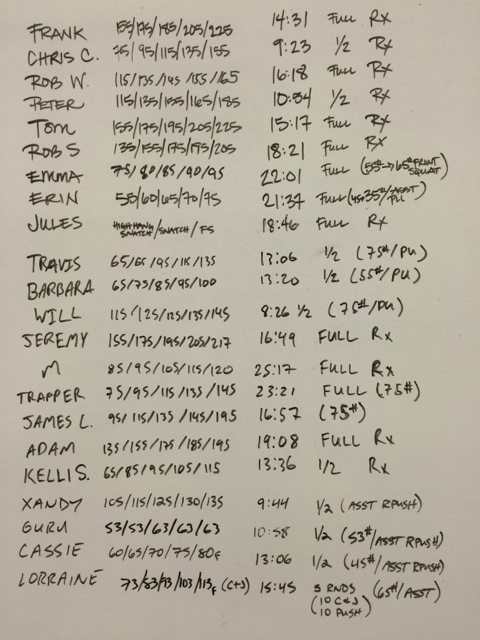 FRANK 155/175/185/205/225 14:31 FULL Rx
CHRIS C. 75/95/115/135/155 9:23 1/2 Rx
ROB W. 115/135/145/155/165 16:18 FULL Rx
PETER 115/135/155/165/185 10:54 1/2 Rx
TOM 155/175/195/205/225 15:17 FULL Rx
ROB S 135/155/175/195/205 18:21 FULL Rx
EMMA 75/80/85/90/95 22:01 FULL (55#→65# FRONT SQUAT)
ERIN 55/60/65/70/75 21:37 FULL (45# 35#/ASST PU)
JULES HIGH HANG SNATCH/SNATCH/FS 18:46 FULL Rx
TRAVIS 65/65/95/115/135 13:06 1/2 (75#/PU)
BARBARA 65/75/85/95/100 13:20 1/2 (55#/PU)
WILL 115/125/125/135/145 8:26 1/2 (75#/PU)
JEREMY 155/175/195/205/217 16:49 FULL Rx
M 85/95/105/115/120 25:17 FULL Rx
TRAPPER 75/95/115/135/145 23:21 FULL (75#)
JAMES L. 95/115/135/145/195 16:57 (75#)
ADAM 135/155/175/185/195 19:08 FULL Rx
KELLI S. 65/85/95/105/115 13:36 1/2 Rx
XANDY 105/115/125/130/135 9:44 1/2 (ASST RPUSH)
GURU 53/53/63/63/63 10:58 1/2 (53#/ASST RPUSH)
CASSIE 60/65/70/75/80F 13:06 1/2 (45#/ASST RPUSH)
LORRAINE 73/83/93/103/113F (C+J) 15:45 5 RNDS (65#/ASST)
(10 C&J
10 PUSH)